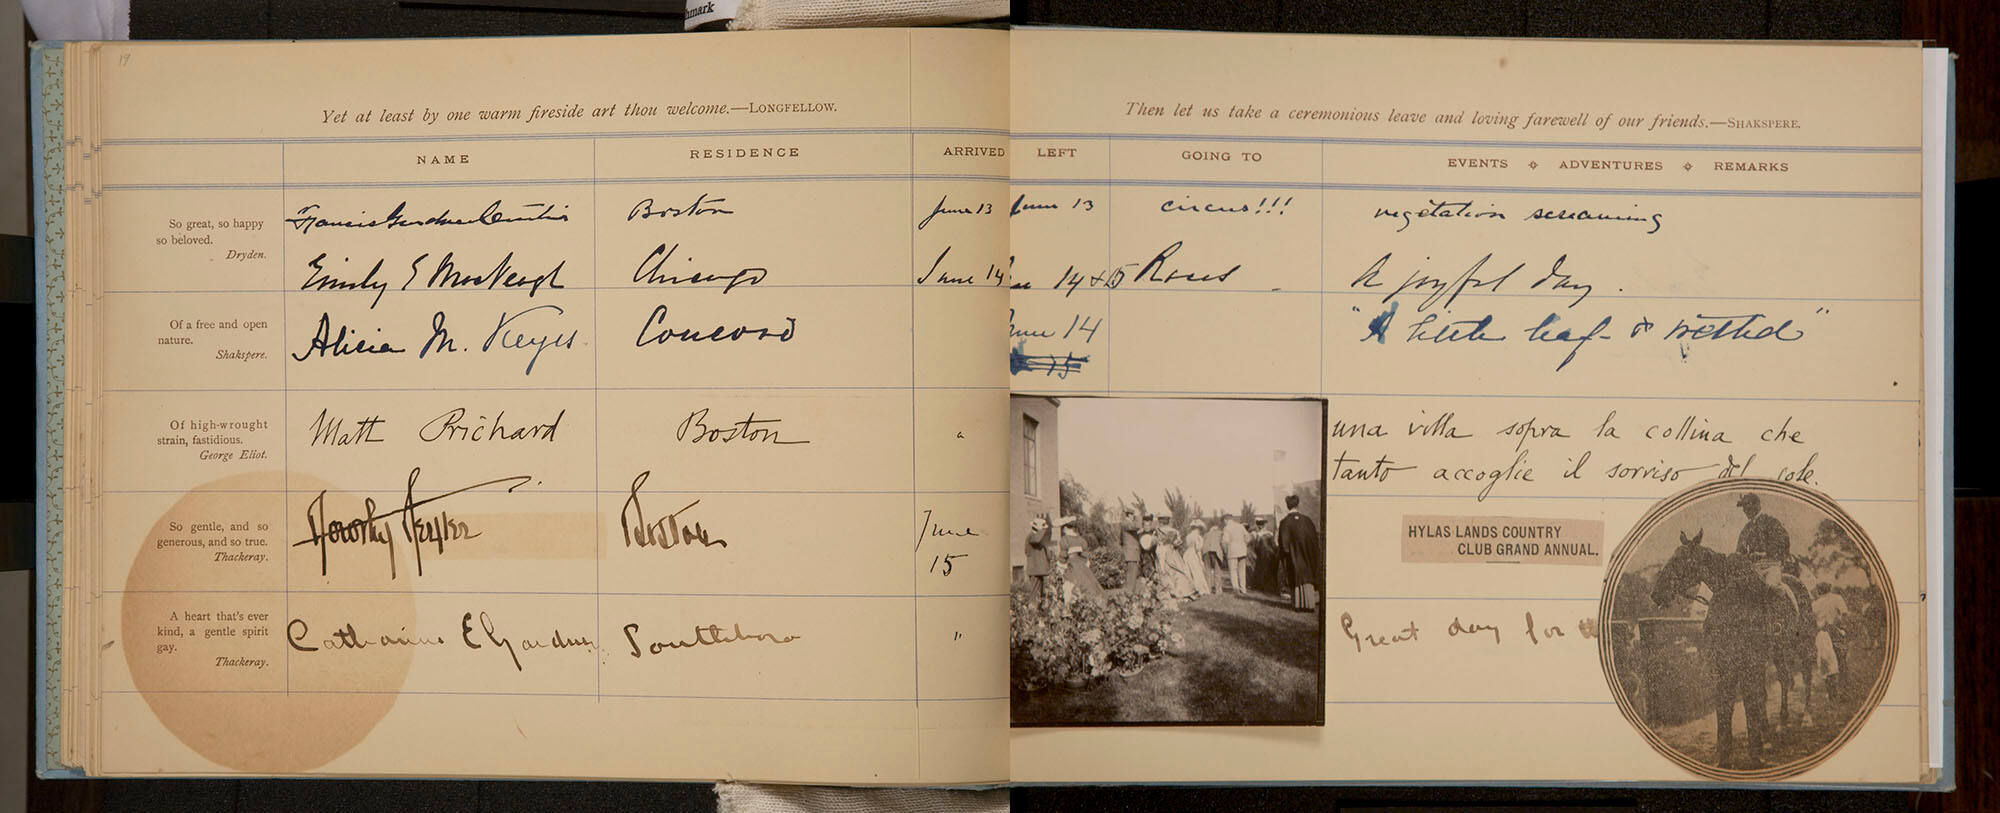 hmark
19
Yet at least by one warm fireside art thou welcome.—LONGFELLOW.
NAME
RESIDENCE
ARRIVED
So great, so happy
so beloved.
Dryden.
Francis Gardner Curtis
Boston
June 13
Emily E
Chicago
June 14
Of a free and open
nature.
Shakspere.
Alicia M. Keyes
Concord
Of high-wrought
strain, fastidious.
George Eliot.
Matt Prichard
Boston
"
So gentle, and so
generous, and so true.
Thackeray.
Dorothy
Boston
June
15
A heart that's ever
kind, a gentle spirit
gay.
Thackeray.
Catharine E Gardner
Southboro
"
Then let us take a ceremonious leave and loving farewell of our friends.—SHAKSPERE.
LEFT
GOING TO
EVENTS ADVENTURES REMARKS
June 13
circus!!!
vegetation screaming
14 + 15
Races
A joyful day.
June 14
15
"A little leaf
una villa sopra la collina che
tanto accoglie il sorriso del sole.
HYLAS LANDS COUNTRY
CLUB GRAND ANNUAL.
Great day for